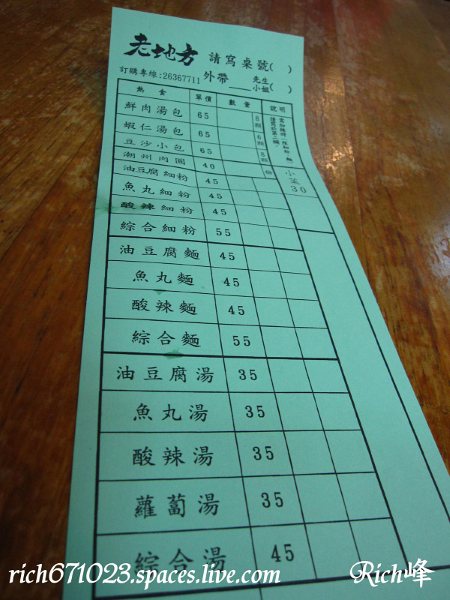 老地方 請寫桌號( )
訂購專線:26367711 外帶 先生 小姐( )
熱食 單價 數量 說明
鮮肉湯包 65
蝦仁湯包 65
豆沙小包 65
潮州肉圓 40
油豆腐細粉 45
魚丸細粉 45
酸辣細粉 45
綜合細粉 55
油豆腐麵 45
魚丸麵 45
酸辣麵 45
綜合麵 55
油豆腐湯 35
魚丸湯 35
酸辣湯 35
蘿蔔湯 35
綜合湯 45
小菜
30
rich671023.spaces.live.com Rich峰